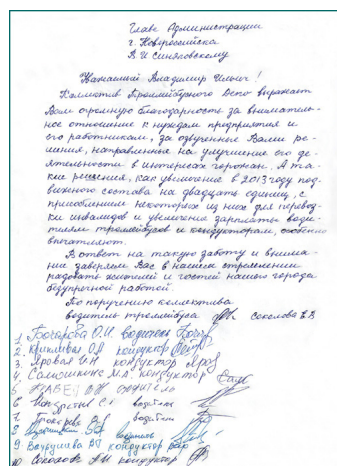 Главе Администрации
г. Новороссийска
В.И Синяговскому
Уважаемый Владимир Ильич!
Коллектив Троллейбусного депо выражает
Вам огромную благодарность за вниматель-
ное отношение к нуждам предприятия и
его работникам, за озвученные Вами ре-
шения, направленные на улучшение его де-
ятельности в интересах горожан. А та-
кие решения, как увеличение в 2013 году под-
вижного состава на двадцать единиц, с
приспоблением некоторых из них для перевоз-
ки инвалидов и увеличение зарплаты води-
телям троллейбусов и кондукторам, особенно
впечатляют.
В ответ на такую заботу и внима-
ние заверяем Вас в нашем стремлении
радовать жителей и гостей нашего города
безупречной работей.
По поручению коллектива
водитель троллейбуса Соколова
1. О.И. водитель
2. О.А кондуктор
3. Яровая кондуктор
4. кондуктор
5. водитель
6. водитель
7. водитель
8. водитель
9. кондуктор
10. кондуктор